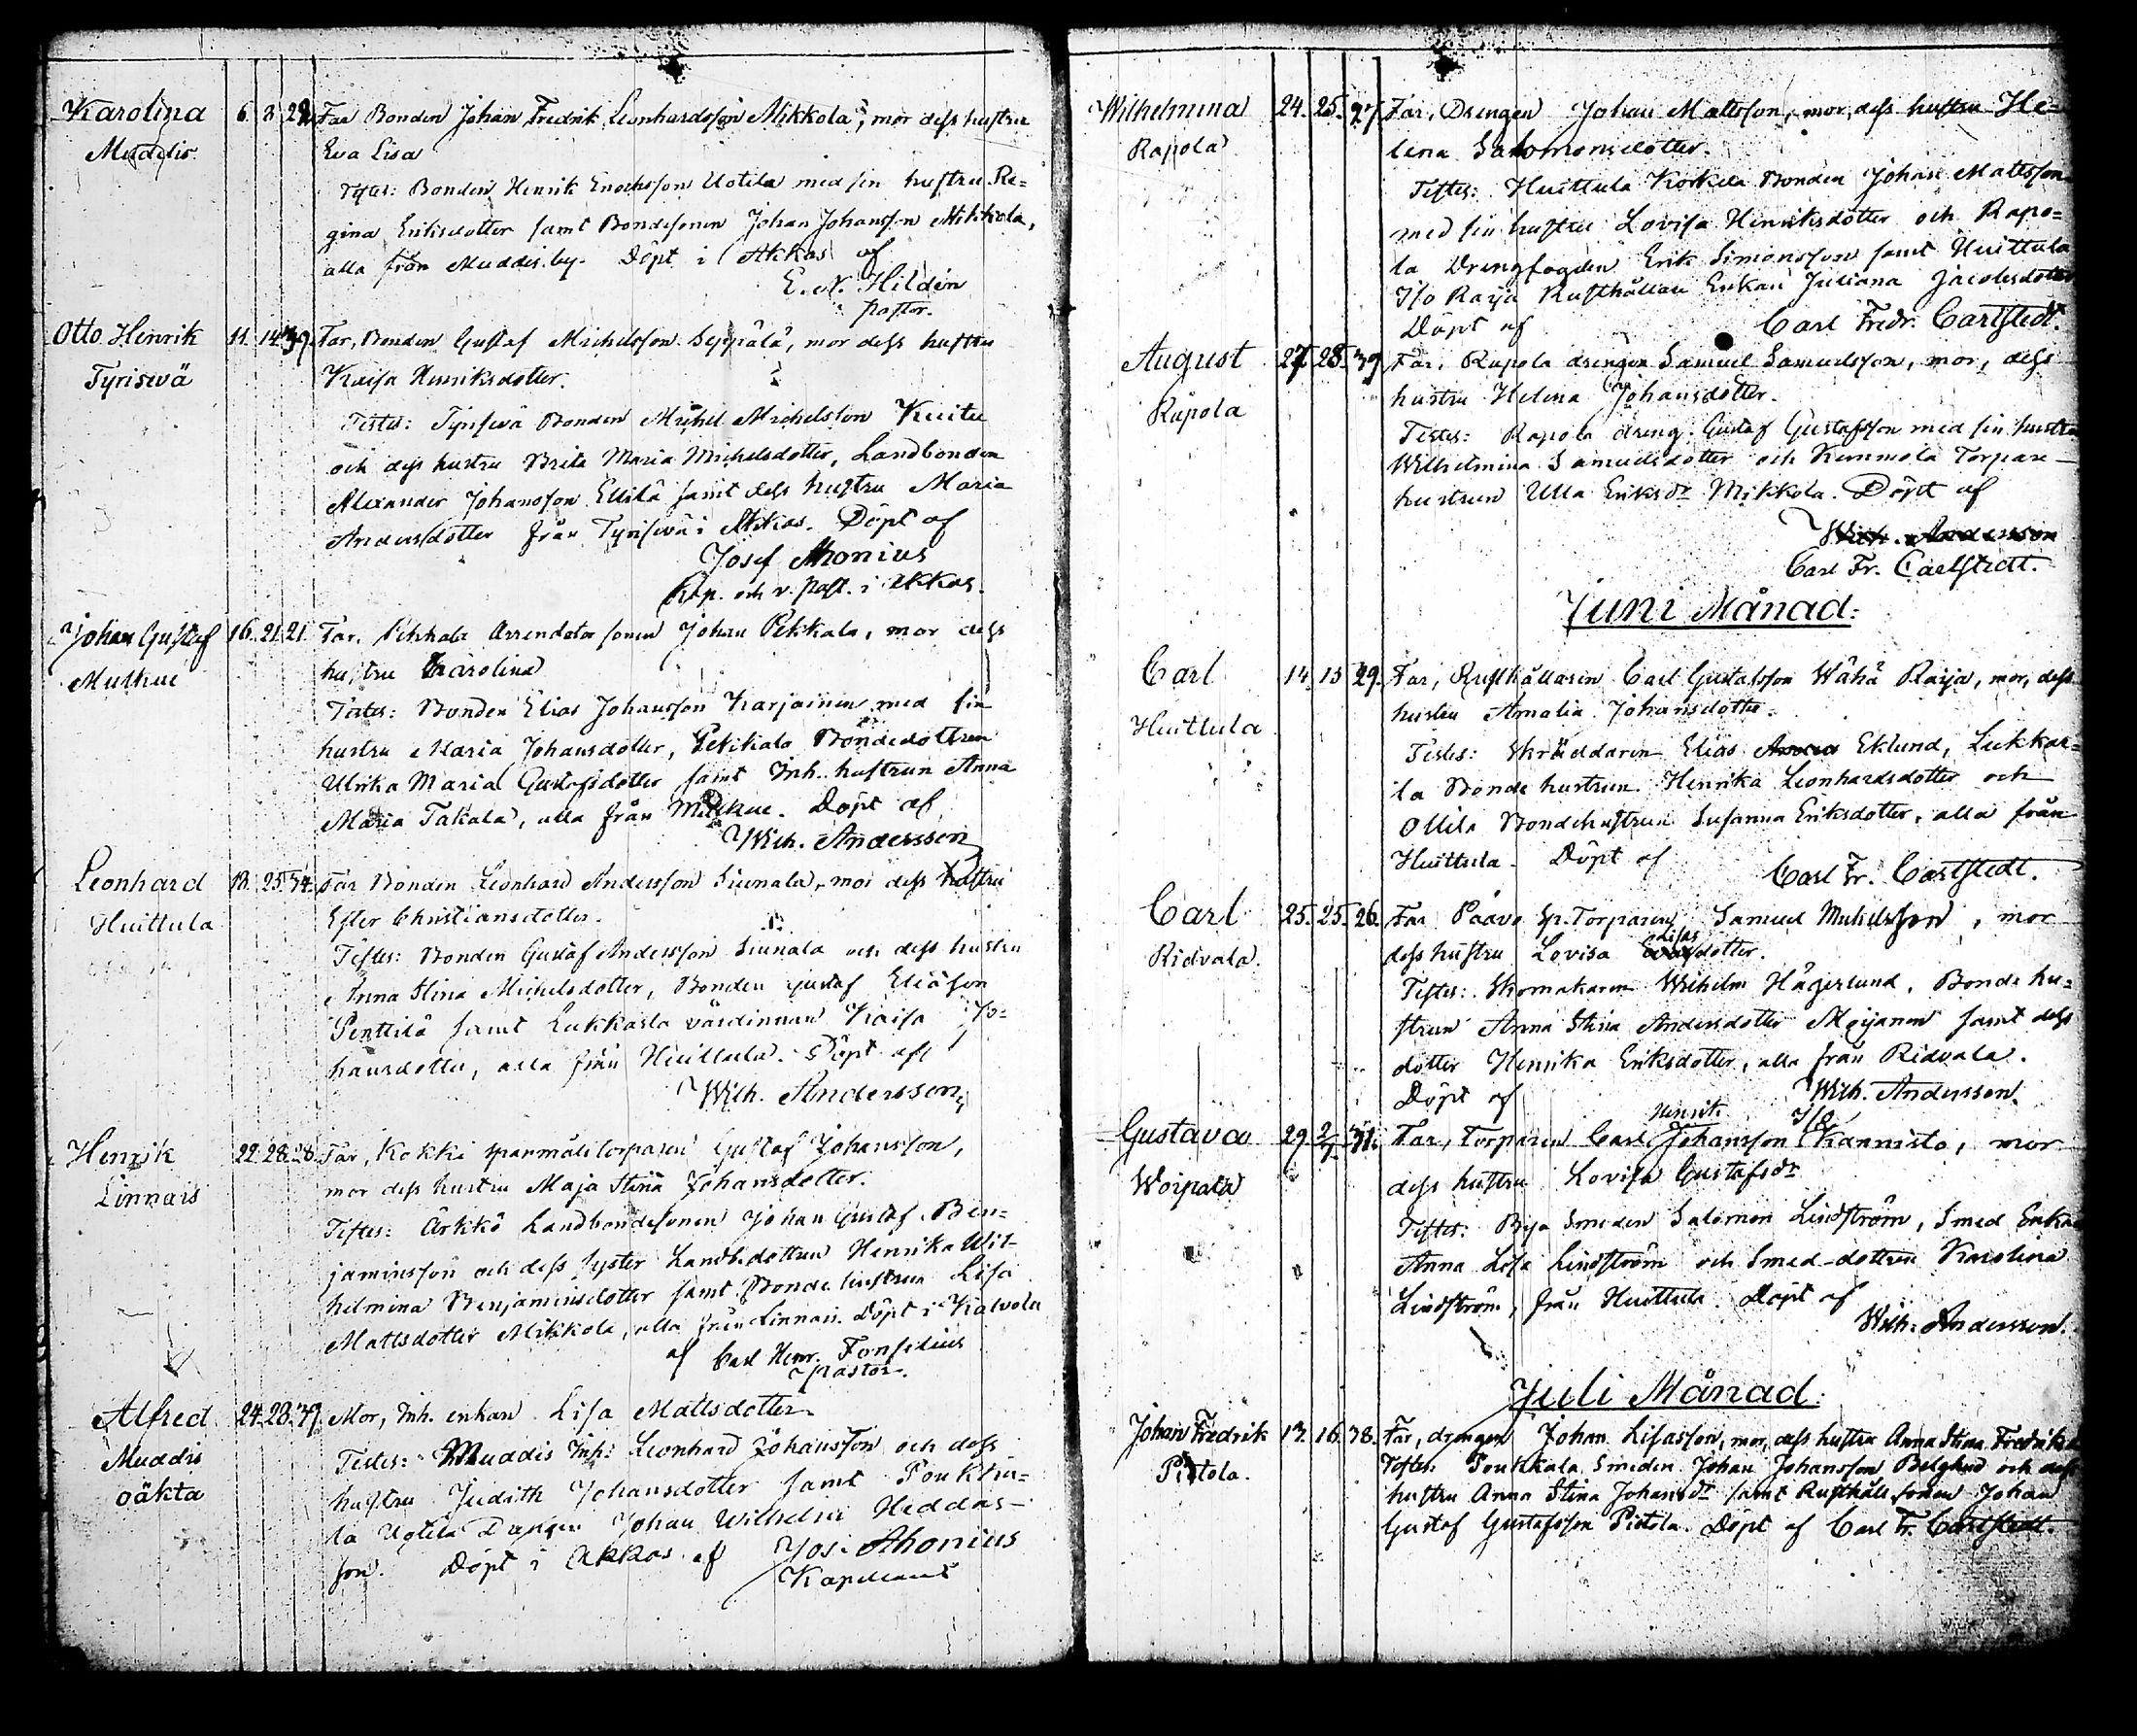 Karolina 6. 8. 28. Far Bonden Johan Fredrik Leonhardsson Mikkola, mor dess hustru
Muddis Eva Lisa
Testes: Bonden Henrik Enochsson Uotila med sin hustru Re=
gina Eriksdotter samt Bondesonen Johan Johansson Mikkola,
alla från Muddis by. Döpt i Akkas af
E. N. Hildén
pastor.
Otto Henrik 11. 14. 39. Far, Bonden Gustaf Michelsson Seppälä, mor dess hustru
Tyriswä Kaisa Henriksdotter.
Testes: Tyriswä Bonden Michel Michelsson Kuitu
och dess hustru Brita Maria Michelsdotter, Landbonden
Alexander Johansson Ellilä samt dess hustru Maria
Andersdotter från Tyriswä i Akkas. Döpt af
Josef Ahonius
Kap. och v. past. i Akkas.
Johan Gustaf 16. 21. 21. Far, Pekkala Arrendator sonen Johan Pekkala, mor dess
Mulkue hustru Karolina
Testes: Bonden Elias Johansson Karjainen med sin
hustru Maria Johansdotter, Pekkala Bondedottren
Ulrika Maria Gustafsdotter samt Inh. hustrun Anna
Maria Takala, alla från Mulkue. Döpt af
Wilh. Andersson
Leonhard 18. 25. 34. Far Bonden Leonhard Andersson Siunala, mor dess hustru
Huittula Ester Christiansdotter.
Testes: Bonden Gustaf Andersson Siunala och dess hustru
Anna Stina Michelsdotter, Bonden Gustaf Eliasson
Penttilä samt Lukkarla värdinnan Kaisa Jo=
hansdotter, alla från Huittula. Döpt af
Wilh. Andersson,
Henrik 22. 28. 28. Far, Kokki spanmålstorparen Gustaf Johansson,
Linnais mor dess hustru Maja Stina Johansdotter.
Testes: Ärkkö Landbondesonen Johan Gustaf Ben=
jaminsson och dess syster Landb.dottren Henrika Wil-
helmina Benjaminsdotter samt Bonde hustrun Lisa
Mattsdotter Mikkola, alla från Linnais. Döpt i Kalvola
af Carl Henr. Fonselius
pastor.
Alfred 24. 28. 39. Mor, Inh. enkan Lisa Mattsdotter.
Muddis Testes: Muddis Inh: Leonhard Johansson och dess
oäkta hustru Judith Johansdotter samt
la Uotila Drängen Johan Wilhelm
son. Döpt i Akkas af Jos. Ahonius
Kapellant
Wilhelmina 24. 25. 27. Far, Drengen Johan Mattsson, mor, dess hustru He=
Rapola lena Salomonsdotter.
Testes: Huittula Korkela Bonden Johan Mattsson
med sin hustru Lovisa Henriksdotter och Rapo=
la Drengfogden Erik Simonsson samt Huittula
Iso Raija Rusthållare Enkan Juliana Jacobsdotter
Döpt af Carl Fredr. Carlstedt.
August 27. 28. 39. Far, Rapola drengen Samuel Samuelsson, mor, dess
Rapola hustru Helena Johansdotter.
Testes: Rapola dreng Gustaf Gustafsson med sin hustru
Wilhelmina Samuelsdotter och Kemmola Torpare
hustrun Ulla Eriksdr Mikkola. Döpt af
Wilh. Andersson
Carl Fr. Carlstedt.
Juni Månad:
Carl 14. 15. 29. Far, Rusthållaren Carl Gustafsson Wähä Raija, mor, dess
Huittula hustru Amalia Johansdotter.
Testes: Skräddaren Elias Eklund, Lukkar=
la Bonde hustrun Henrika Leonhardsdotter och
Ollila Bondehustrun Susanna Eriksdotter, alla från
Huittula. Döpt af Carl Fr. Carlstedt.
Carl 25. 25. 26. Far Paavo Sp. Torparen Samuel Michelsson, mor
Ridvala. dess hustru Lovisa Lisas dotter.
Testes: Skomakaren Wilhelm Hägerlund, Bonde hu=
strun Anna Stina Andersdotter Meijanen samt dess
dotter Henrika Eriksdotter, alla från Ridvala.
Döpt af Wilh. Andersson.
Gustava 29. 2/7. 31. Far, Torparen Carl Henrik Johansson Iso Kannisto, mor
Woipala dess hustru Lovisa Gustafsdr
Testes: Bya Smeden Salomon Lindström, Smed Enkan
Anna Lisa Lindström och Smed-dottren Karolina
Lindström, från Huittula. Döpt af
Wilh. Andersson.
Juli Månad:
Johan Fredrik 13. 16. 38. Far, drengen Johan Lisasson, mor, dess hustru Anna Stina
Pistola. Testes: Smeden Johan Johansson och dess
hustru Anna Stina Johansdr samt Rusthåll. sonen Johan
Gustaf Gustafsson Pistola. Döpt af Carl Fr. Carlstedt.